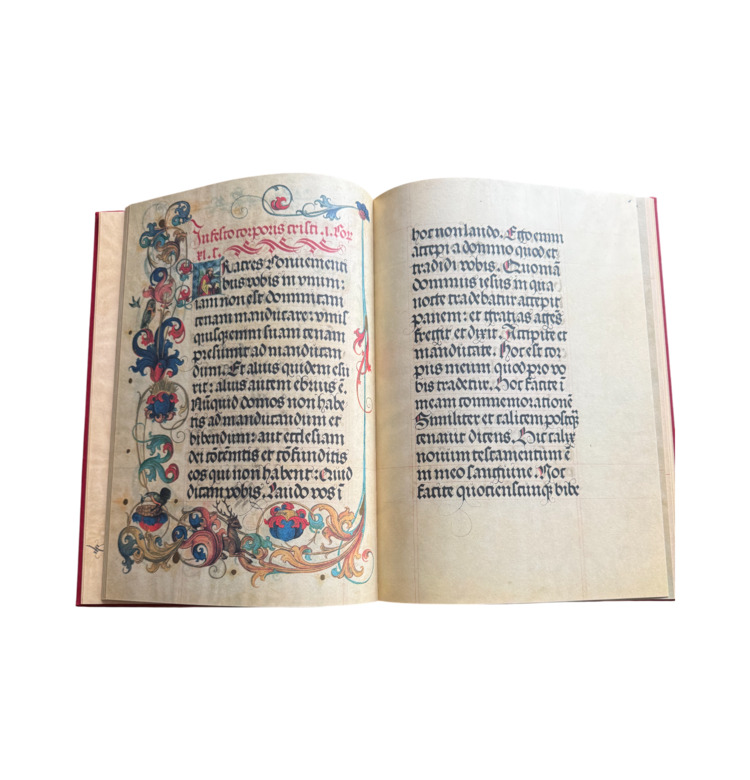 In festo corporis cristi .i. Cor
xi. c.
Fratres Conuenienti
bus vobis in vnum:
iam non est dominicam
cenam manducare: vnus
quisq; enim suam cenam
presumit ad manducan
dum. Et alius quidem esu
rit: alius autem ebrius ē.
Nūquid domos non habe
tis ad manducandum et
bibendum: aut ecclesiam
dei cōtēnitis et cōfunditis
eos qui non habent: Quid
dicam vobis. Laudo vos ī
hoc non laudo. Ego enim
accepi a domino quod et
tradidi vobis. Quoniā
dominus iesus in qua
nocte tradebatur accepit
panem: et gratias ages
fregit et dixit. Accipite et
manducate. Hoc est cor
pus meum quod pro vo
bis tradetur. Hoc facite ī
meam commemorationē
Similiter et calicem postq̄
cenauit dicens. Hic calix
nouum testamentum ē
in meo sanguine. Hoc
facite quotienscunq; bibe